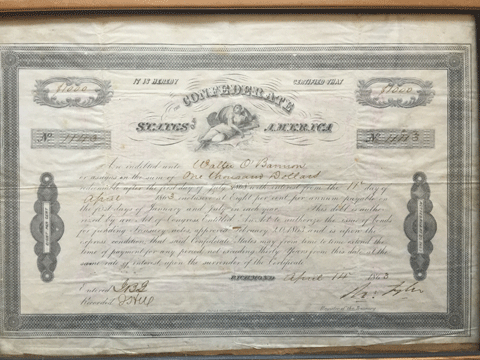 $1000 $1000
IT IS HEREBY CERTIFIED THAT
THE
CONFEDERATE
STATES OF AMERICA
No 1143 No 1143
Are indebted unto Walter O'Bannon
or assigns in the sum of One thousand Dollars
after the first day of July with interest from the 14th day of
April 1863 inclusive at Eight per cent per annum payable on
the first days of January and July in each year. This debt is autho-
rized by an Act of Congress Entitled An Act to authorize the issue of Bonds
for funding Treasury notes approved February 20, 1863 and is upon the
express condition that said Confederate States may from time to time extend the
time of payment for any period not exceeding thirty Years from this date at the
same rate of interest upon the surrender of the Certificate.
RICHMOND April 14th 1863
Entered
Recorded